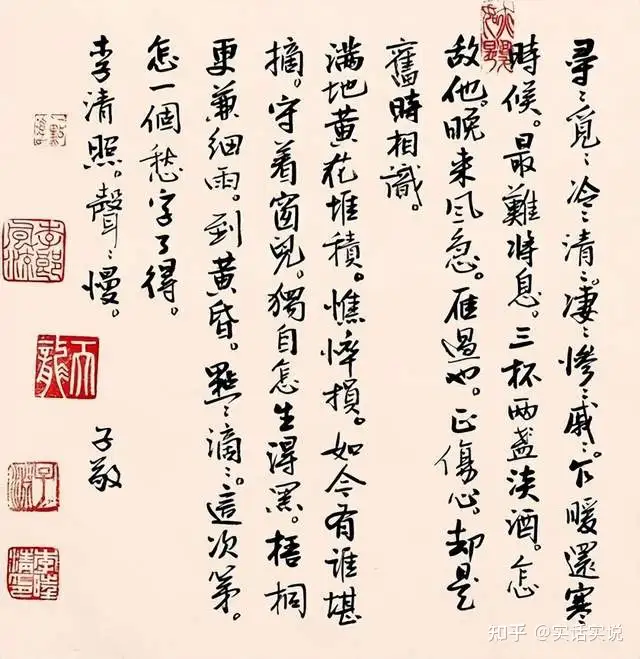 尋〻覓〻冷〻清〻。凄〻慘〻戚〻。乍暖還寒
時候。最難将息。三杯两盏淡酒。怎
敌他。晚来风急。雁過也。正傷心。却是
舊時相識。
满地黄花堆積。憔悴損。如今有誰堪
摘。守着窗兒。獨自怎生得黑。梧桐
更兼细雨。到黄昏。點〻滴〻。這次第。
怎一個愁字了得。
李清照。聲〻慢。
子敬
天龍
知乎 @实话实说